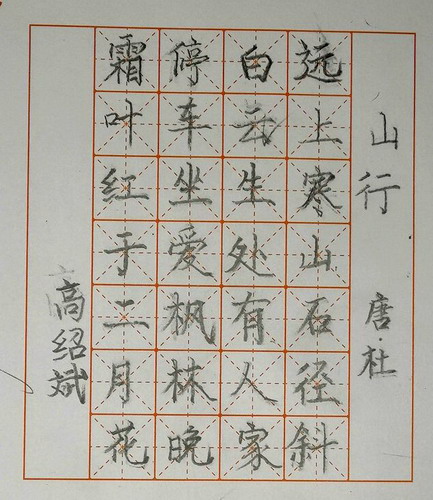 山行 唐·杜
远上寒山石径斜
白云生处有人家
停车坐爱枫林晚
霜叶红于二月花
高绍斌